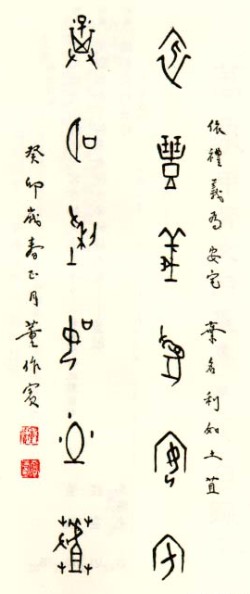 依禮義為安宅 棄名利如土苴
依禮義為安宅
棄名利如土苴
癸卯歲春正月董作賓